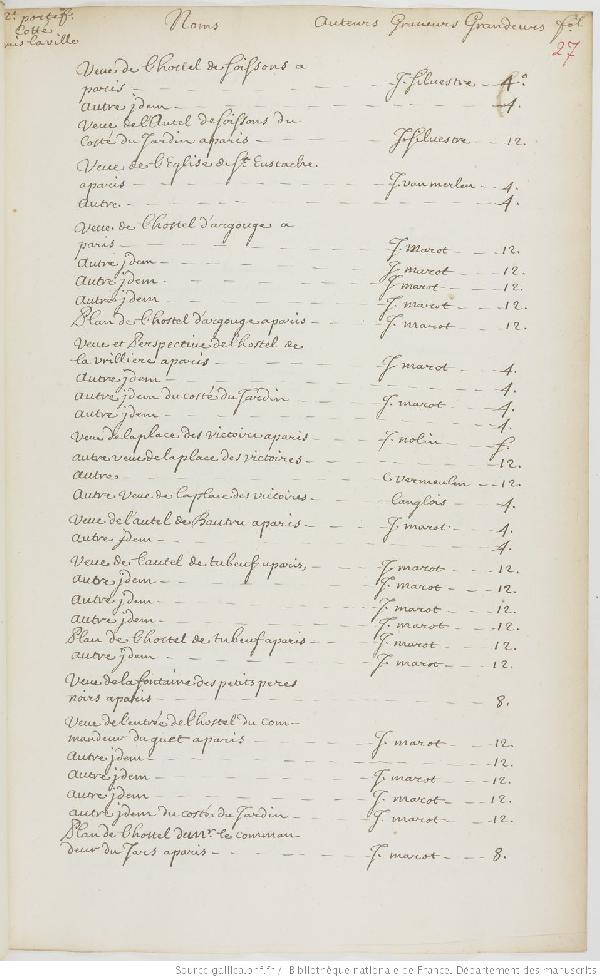 2.e portef.
Cotté
Noms Auteurs Graveurs Grandeurs fol
paris la ville
27
Veue de l'hostel de soissons a
paris — J. silvestre — 4.o
autre jdem — 4.
Veue de l'autel de soissons du
costé du Jardin a paris — J. silvestre — 12.
Veue de l'Eglise de St. Eustache
a paris — J. van merlen — 4.
autre — 4.
Veue de l'hostel d'argouge a
paris — J. marot — 12.
autre jdem — J. marot — 12.
autre jdem — J. marot — 12.
autre jdem — J. marot — 12.
Plan de l'hostel d'argouge a paris — J. marot — 12.
Veue et Perspective de l'hostel de
la vrilliere a paris — J. marot — 4.
autre jdem — 4.
autre jdem du costé du Jardin — J. marot — 4.
autre jdem — 4.
Veue de la place des victoires a paris — J. nolin — f.
autre veue de la place des victoires — 12.
autre — C. vermeulen — 12.
autre Veue de la place des victoires — langlois — 4.
Veue de l'autel de Bautru a paris — J. marot — 4.
autre jdem — 4.
Veue de l'autel de tubeuf a paris — J. marot — 12.
autre jdem — J. marot — 12.
autre jdem — J. marot — 12.
autre jdem — J. marot — 12.
Plan de l'hostel de tubeuf a paris — J. marot — 12.
autre jdem — J. marot — 12.
Veue de la fontaine des petits peres
noirs a paris — 8.
Veue de l'entrée de l'hostel du com-
mandeur du guet a paris — J. marot — 12.
autre jdem — 12.
autre jdem — J. marot — 12.
autre jdem — J. marot — 12.
autre jdem du costé du Jardin — J. marot — 12.
Plan de l'hostel de mr. le comman-
deur du Jars a paris — J. marot — 8.
Source gallica.bnf.fr / Bibliothèque nationale de France. Département des manuscrits